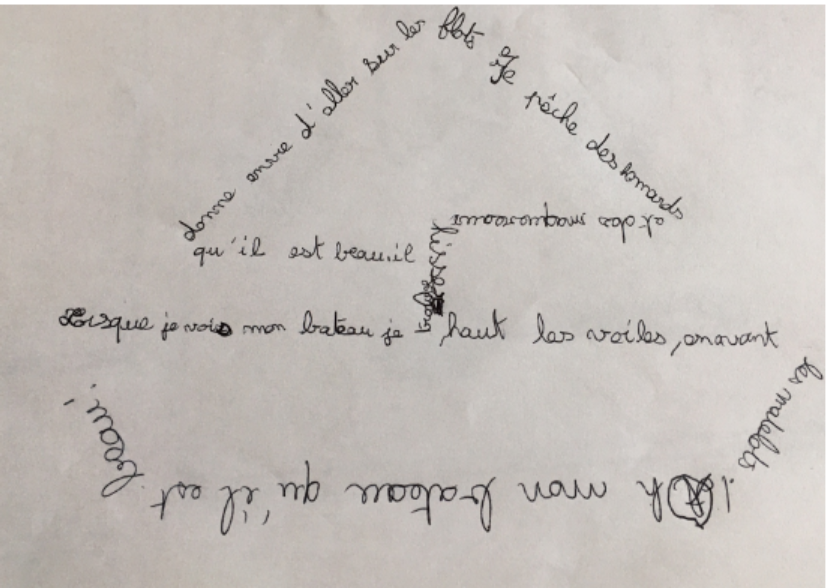 Lorsque je vois mon bateau je
trouve
qu'il est beau.il
donne envie d'aller sur les flots
Je pêche des homards
et des maquereaux
hisse
haut les voiles, en avant
les matelots
! Oh mon bateau qu'il est
beau !